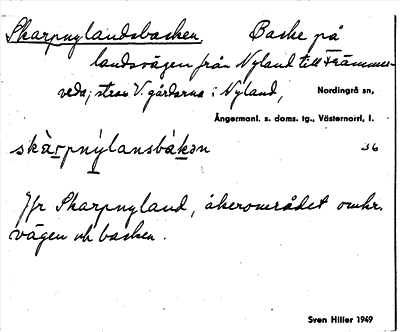 Skarpnylandsbacken. Backe på
landsvägen från Nyland till Främmer-
veda; strax V. gårdarna i Nyland, Nordingrå sn,
Ångermanl. s. doms. tg., Västernorrl. l.
skàrpnýlansbàkən 36
Jfr Skarpnyland, åkerområdet omkr.
vägen uti backen.
Sven Hiller 1949